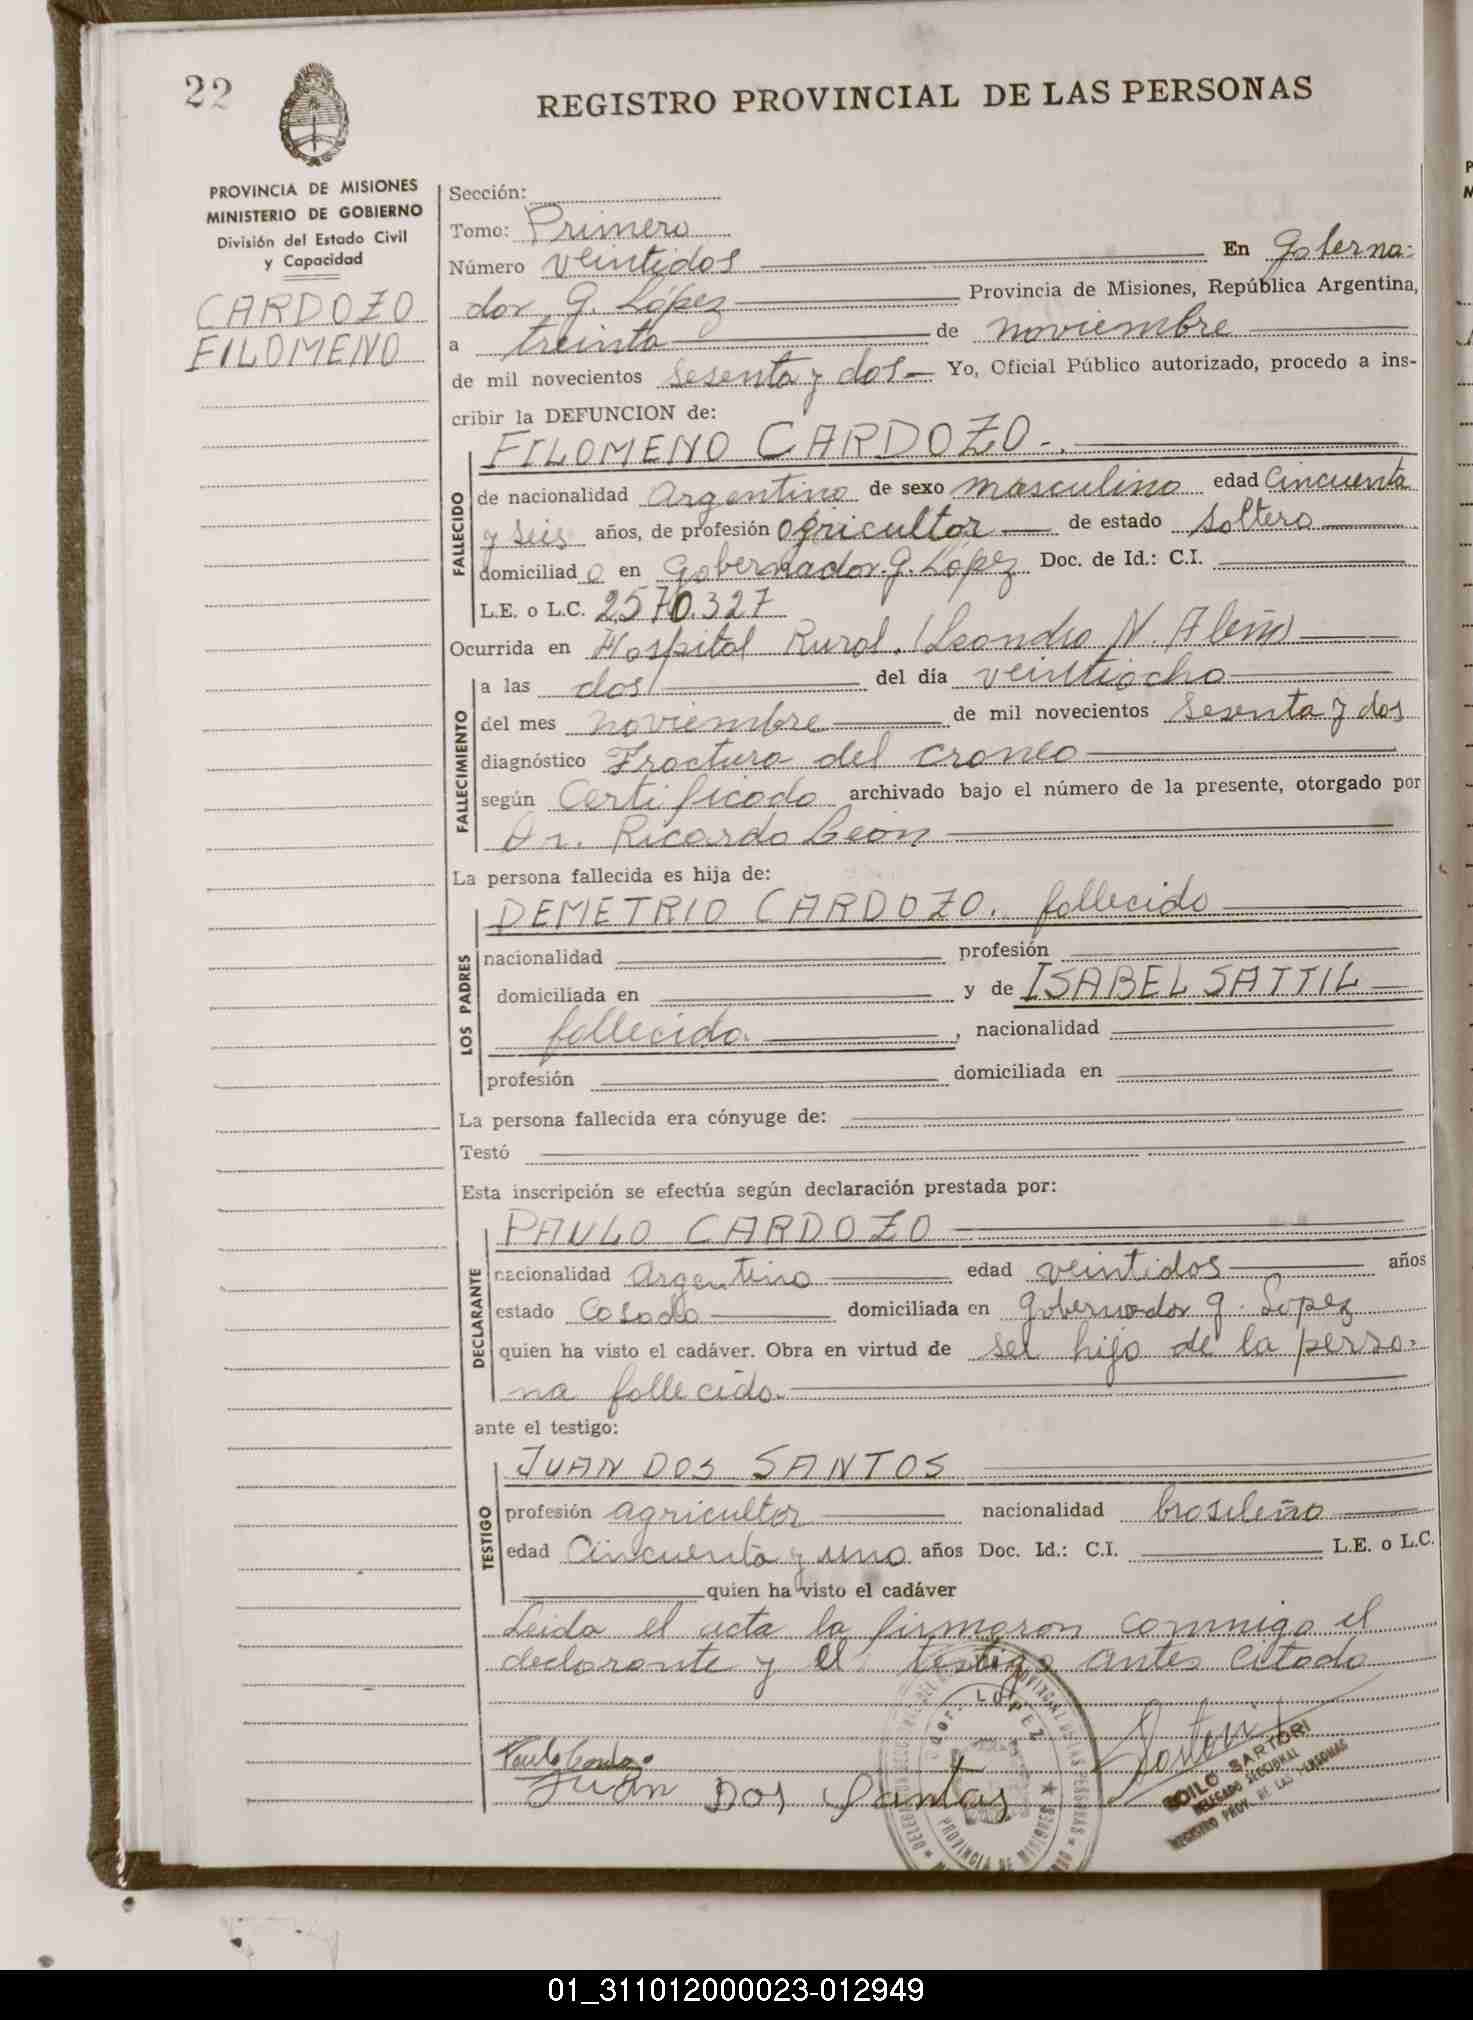 22
REGISTRO PROVINCIAL DE LAS PERSONAS
PROVINCIA DE MISIONES
MINISTERIO DE GOBIERNO
División del Estado Civil
y Capacidad
CARDOZO
FILOMENO
Sección:
Tomo: Primero
Número veintidos En Goberna-
dor G. López Provincia de Misiones, República Argentina,
a treinta de noviembre
de mil novecientos sesenta y dos Yo, Oficial Público autorizado, procedo a ins-
cribir la DEFUNCION de:
FILOMENO CARDOZO
FALLECIDO
de nacionalidad Argentino de sexo masculino edad Cincuenta
y seis años, de profesión agricultor de estado soltero
domiciliad o en Gobernador G. López Doc. de Id.: C.I.
L.E. o L.C. 2570.327
Ocurrida en Hospital Rural. (Leandro N. Alem)
FALLECIMIENTO
a las dos del día veintiocho
del mes noviembre de mil novecientos sesenta y dos
diagnóstico Fractura del craneo
según Certificado archivado bajo el número de la presente, otorgado por
Dr. Ricardo Leon
La persona fallecida es hija de:
LOS PADRES
DEMETRIO CARDOZO. fallecido
nacionalidad profesión
domiciliada en y de ISABEL SATTIL
fallecida. , nacionalidad
profesión domiciliada en
La persona fallecida era cónyuge de:
Testó
Esta inscripción se efectúa según declaración prestada por:
DECLARANTE
PAULO CARDOZO
nacionalidad Argentino edad veintidos años
estado Casado domiciliada en Gobernador G. López
quien ha visto el cadáver. Obra en virtud de ser hijo de la perso-
na fallecida.
ante el testigo:
TESTIGO
JUAN DOS SANTOS
profesión agricultor nacionalidad brasileño
edad Cincuenta y uno años Doc. Id.: C.I. L.E. o L.C.
quien ha visto el cadáver
Leida el acta la firmaron conmigo el
declarante y el testigo antes citado
GOR. LOPEZ
PROVINCIA DE MISIONES
Juan Dos Santos
ZOILO SARTORI
DELEGADO SECCIONAL
REGISTRO PROV. DE LAS PERSONAS
01_311012000023-012949